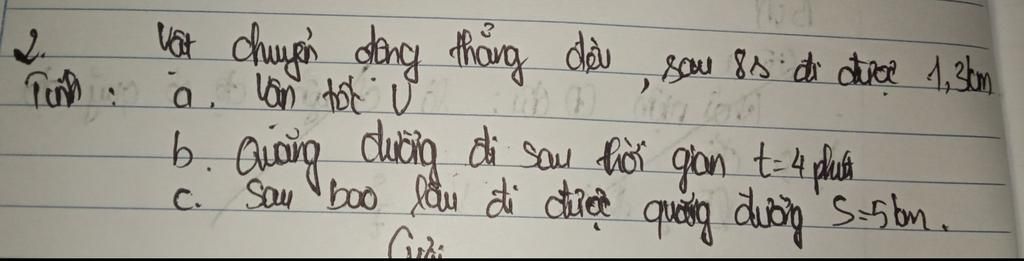 2. Vật chuyển động thẳng đều, sau 8s đi được 1,3km
Tính: a. Vận tốc v
b. Quãng đường đi sau thời gian t=4 phút
c. Sau bao lâu đi được quãng đường S=5km.
Giải